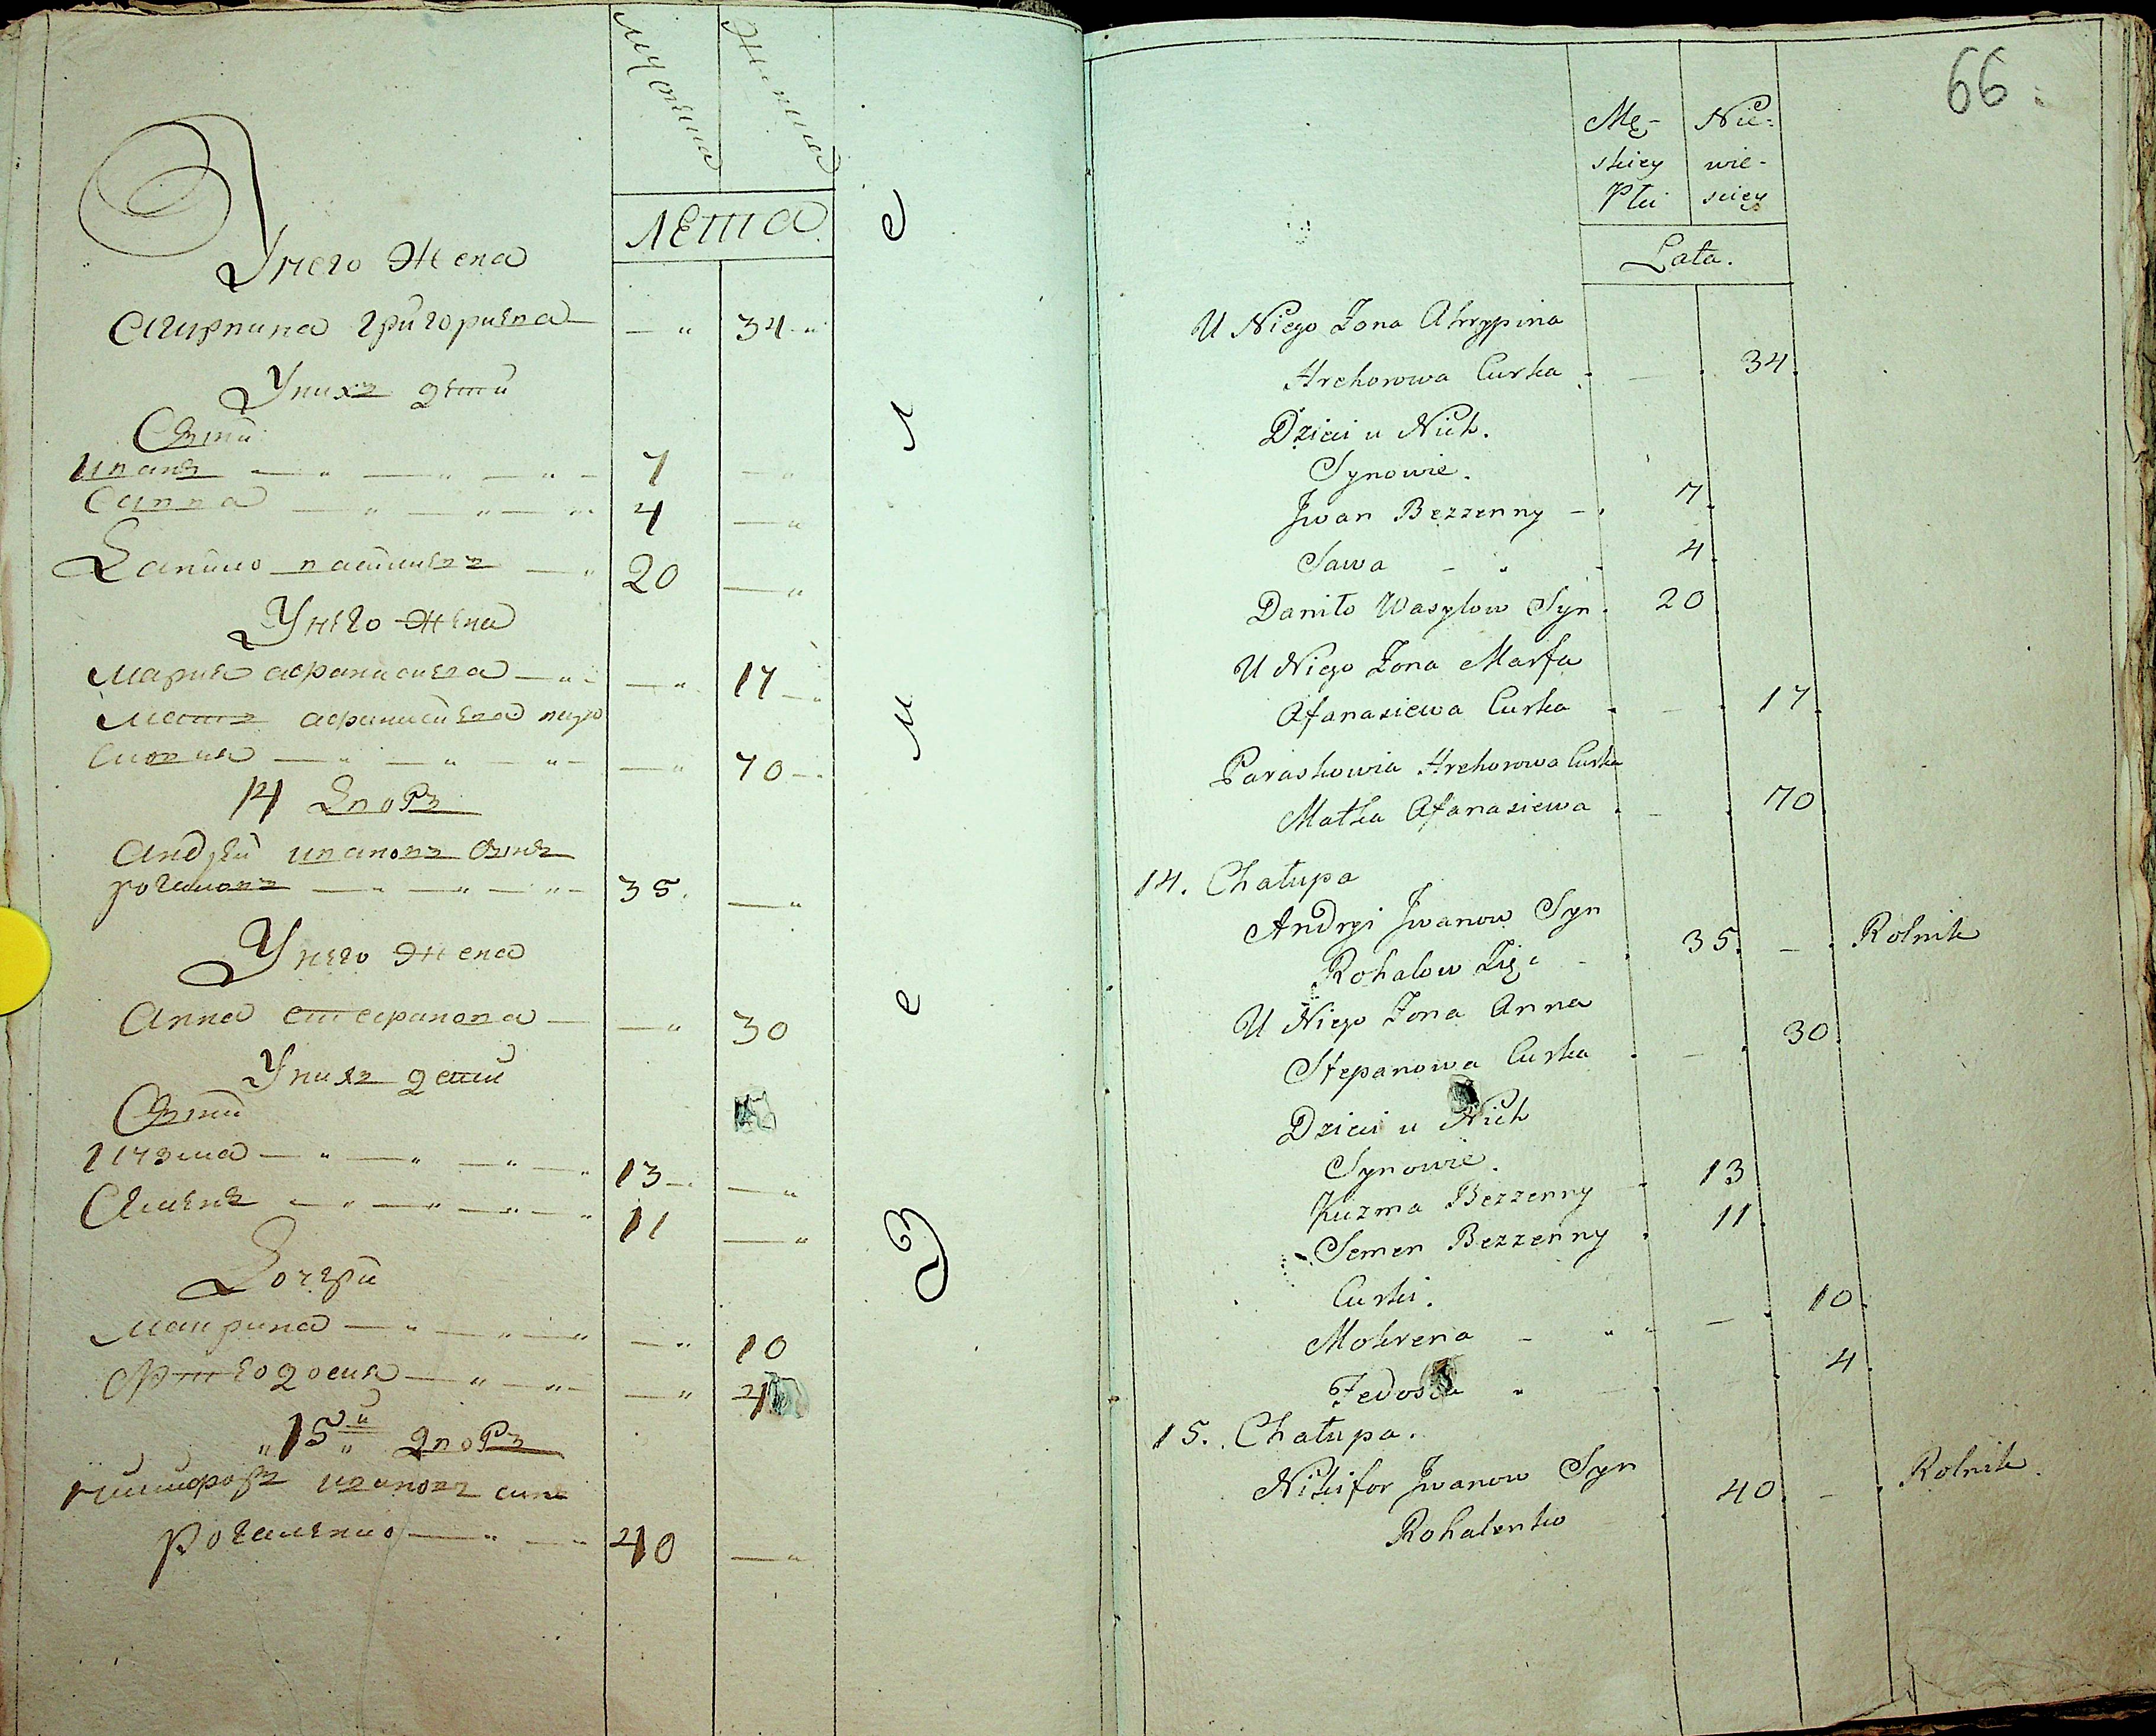 Мужеска
Женска
лета
У него жена
Агирпина григориева — " 34 "
У нихъ дети
Сыни
иванъ — " — " — " — 7 — "
Савва — " — " — " 4 — "
Данило васильевъ — " 20 — "
У него жена
Мария афанасиева — " — — " 17 —
Мать афанасиева параскевия — " — " — " — — " 70 —
14 дворъ
Андрей ивановъ сынъ
рогалювъ — " — " — " — 35 . — "
У него жена
Анна стефанова — — " 30
У нихъ дети
Сыни
кузма — " — " — " — " 13 — — "
Семенъ — " — " — " — " 11 — "
Дочери
Макрина — " — " — " — " 10
Феодосия — " — " — — " 4
" 15й " дворъ
никифоръ ивановъ синъ
рогаленко — " — " 40 — "
З е м л е
66
Mę- Nie-
skiey wie-
Płci sciey
Lata.
U Niego Żona Ahrypina
Hrehorowa Curka . — . 34.
Dzieci u Nich.
Synowie.
Jwan Bezzenny — . 7.
Sawa — " — 4.
Daniło Wasylow Syn . 20
U Niego Żona Marfa
Afanasiewa Curka . — . 17.
Paraskowia Hrehorowa Curka
Matka Afanasiewa . — . 70
14. Chałupa
Andryi Jwanow Syn
Rohalow Zięć — . 35. — . Rolnik
U Niego Żona Anna
Stepanowa Curka . — . 30.
Dzieci u Nich
Synowie.
Kuzma Bezzenny — . 13
Semen Bezzenny . 11.
Curki.
Mokrena — " " — . 10.
Fedosia " — . — . 4.
15. Chałupa.
Nikifor Jwanow Syn
Rohalenko . 40. — . Rolnik.